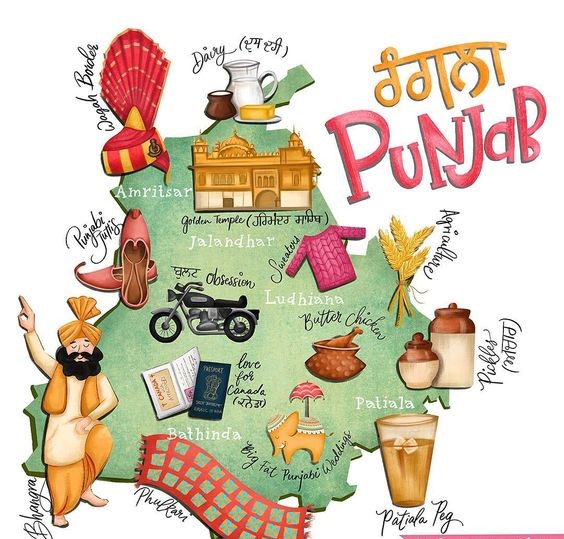 ਰੰਗਲਾ
PUNJAB
Dairy (ਦੁੱਧ ਦਹੀਂ)
Wagah Border
Amritsar
Golden Temple (ਹਰਿਮੰਦਰ ਸਾਹਿਬ)
Jalandhar
Punjabi Juttis
Sweaters
Agriculture
ਬੁਲਟ Obsession
Ludhiana
Butter Chicken
Pickles
(ਅਚਾਰ)
CANADA
PASSPORT
love
for
Canada
(ਕਨੇਡਾ)
Patiala
Bathinda
Big Fat Punjabi Weddings
Bhangra
Phulkari
Patiala Peg